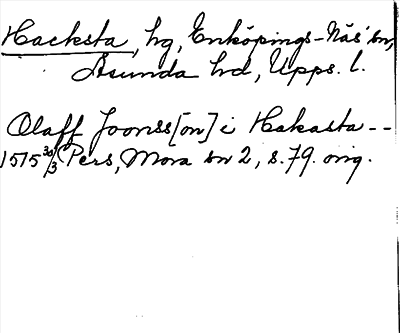 Hacksta, hg, Enköpings-Näs sn,
Åsunda hd, Upps. l.
Olaff Joonss[on] i Hakasta --
1575 30/3 Pers, Mora sn 2, s. 79. orig.